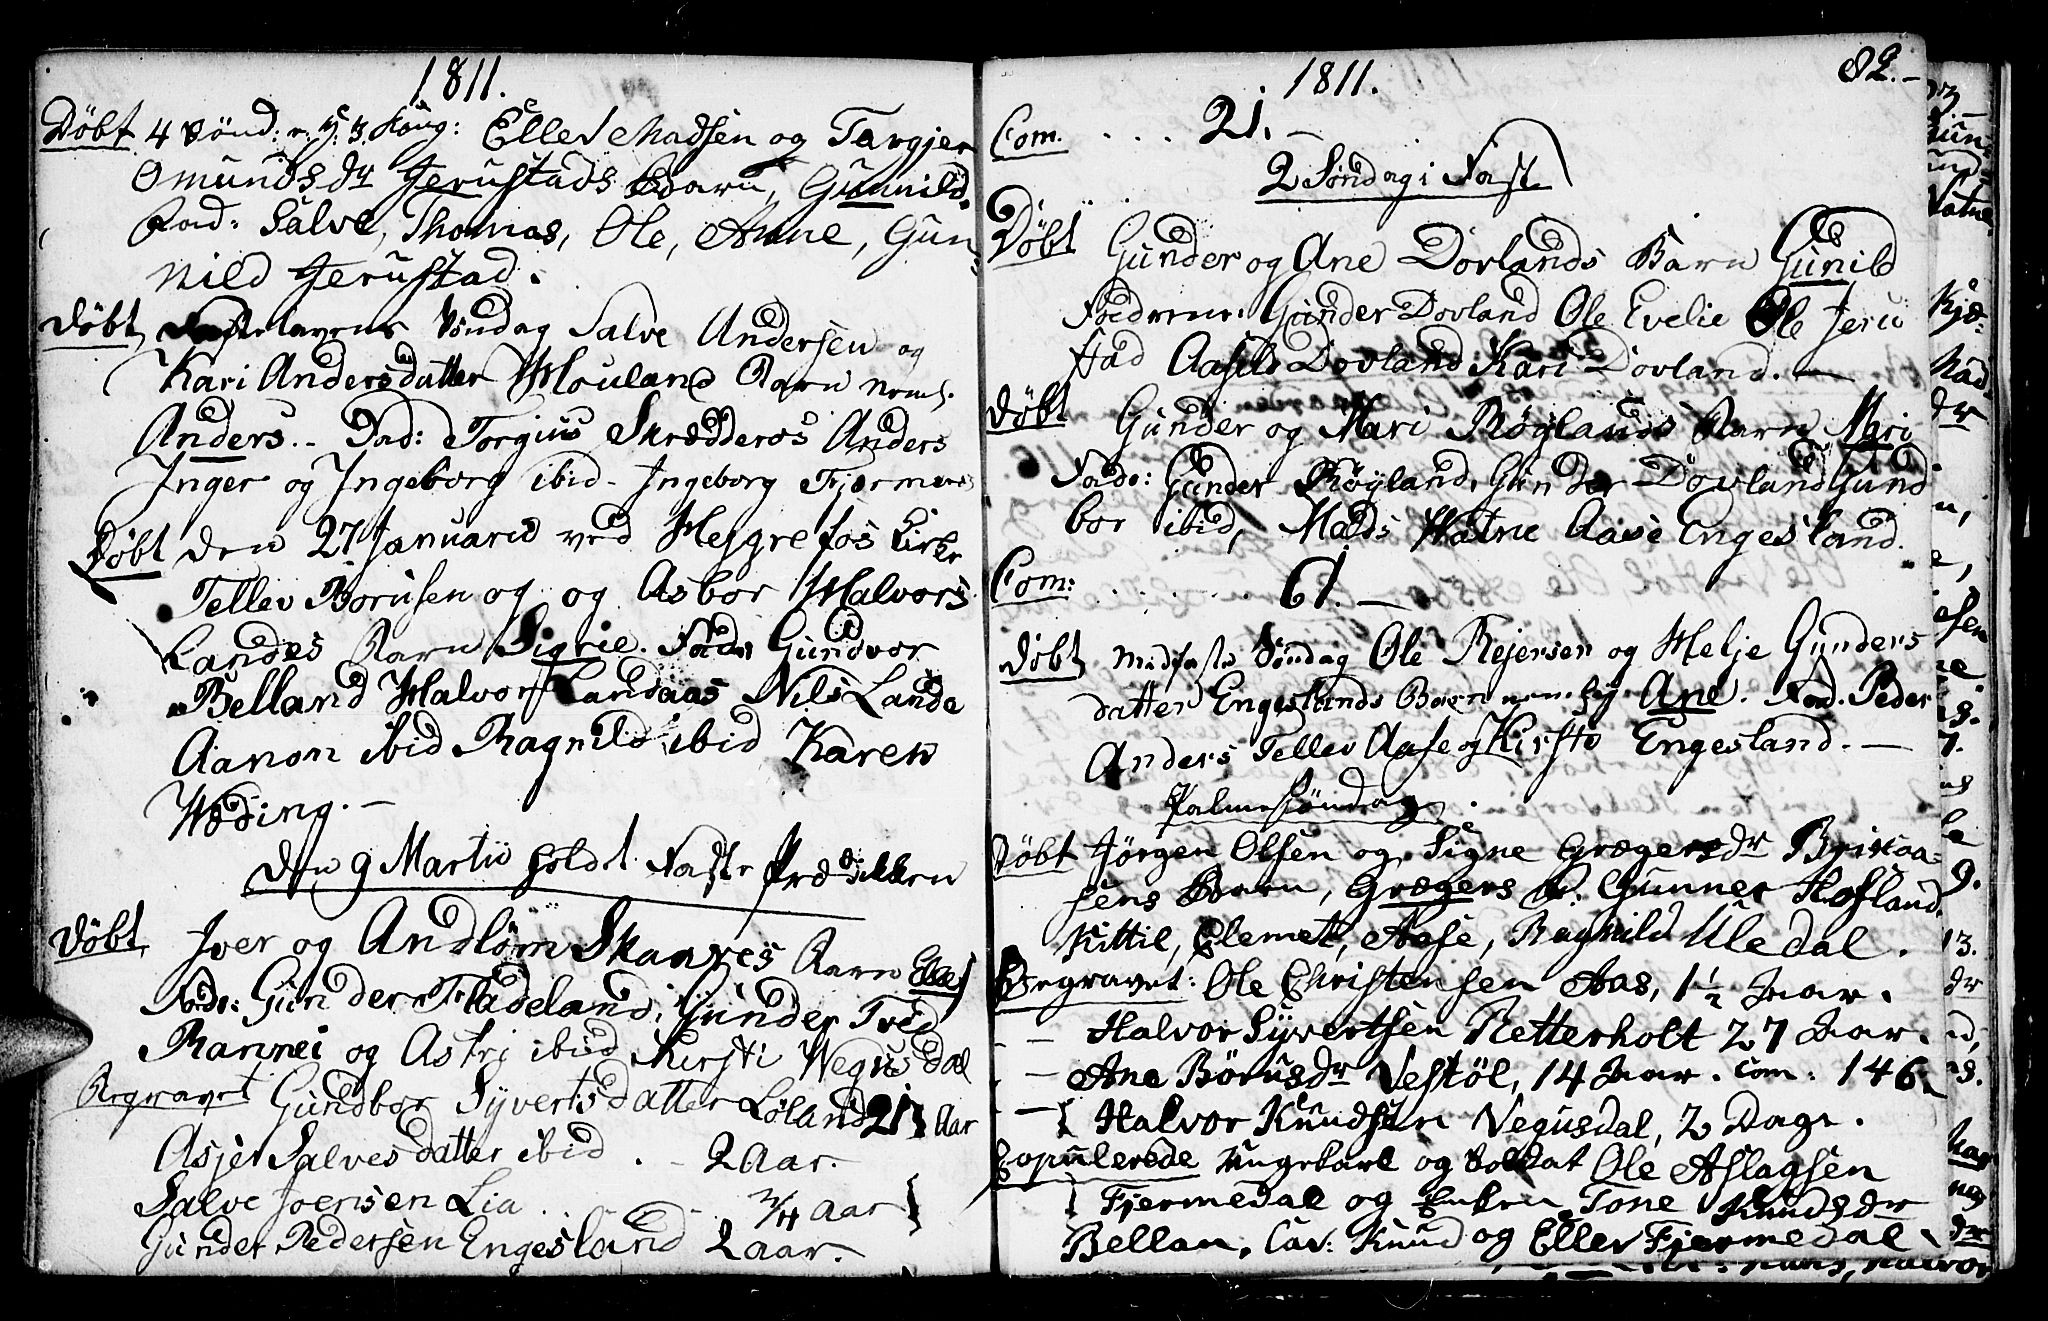 1811.
Döbt 4 Sönd: e: H: 3 Kong: Ellef Madsen og Targjer
Omunds dr Jerustads Barn, Gunnild.
Fad: Salve, Thomas, Ole, Anne, Gun-
nild Jerustad.
Döbt Fastelavens Söndag Salve Andersen og
Kari Andersdatter Houland Barn neml.
Anders. - Fad: Torgius Skrædderos Anders
Inger og Ingeborg ibid - Ingeborg
Döbt den 27 Januarii ved Hesgrefos Kirke
Tellev Borusen og og Asbor Halvors
Landes Barn Sigrie. Fad: Gundvor
Belland Halvor Landaas Nils Lande
Aanon ibid Ragnild ibid Karen
Wæding. -
Den 9 Martii holdt Faste Prædikken
Döbt Iver og Andlöm Skaares Barn Ellef
Fad: Gunder Fladeland, Gunder Tved
Rannei og Astri ibid Kirsti Wegusdal
Begravet Gundbor Syvertsdatter Löland 21 Aar
Asjer Salvesdatter ibid . - 2 Aar.
Salve Joensen Lia . . 3/4 Aar
Gunder Pedersen Engesland 2 Aar.
1811.
82. -
Com. . . . . 21. -
2 Söndag i Fast
Döbt Gunder og Ane Dovlands Barn Gunild
Faderne: Gunder Dovland Ole Evelie Ole Jeru
stad Aasild Dovland Kari Dovland. -
Döbt Gunder og Mari Röylands Barn Mari
Fad: Gunder Röyland, Gunder Dovland Gund
bor ibid, Mads Watne Aase Engesland.
Com: . . . . . . 61. -
Döbt Midfaste Söndag Ole Rejersen og Helje Gunders
datter Engeslands Barn neml. Ane. Fad. Peder
Anders Tellev Aase og Kirsti Engesland. -
Palmesöndag.
Döbt Jörgen Olsen og Signe Grægersdr Briskaa-
sens Barn, Grægers F: Gunner Hofland,
Kittil, Clemet, Aase, Ragnild Uledal.
Begravet: Ole Christensen Aas, 1 1/2 Aar.
- - Halvor Syvertsen Retterholt 27 Aar.
- Ane Börusdr Vestöl, 14 Aar. Com: 146.
- Halvor Knudsen Vegusdal, 2 Dage.
Copulerede Ungekarl og Soldat Ole Aslagsen
Fjermedal og Enken Tone Knudsdr
Bellan. Cav: Knud og Ellev Fjermedal